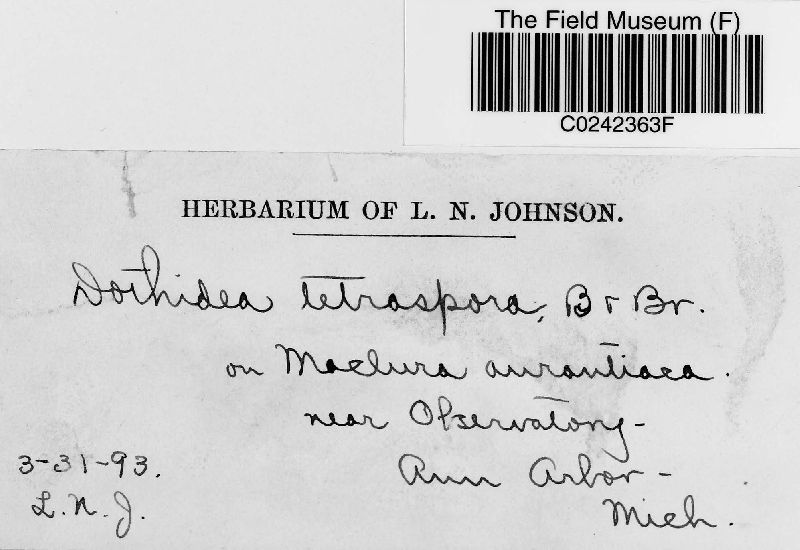 The Field Museum (F)
C0242363F
HERBARIUM OF L. N. JOHNSON.
Dothidea tetraspora, B r Br.
on Maclura aurantiaca.
near Observatory-
Ann Arbor-
Mich.
3-31-93.
L. N. J.